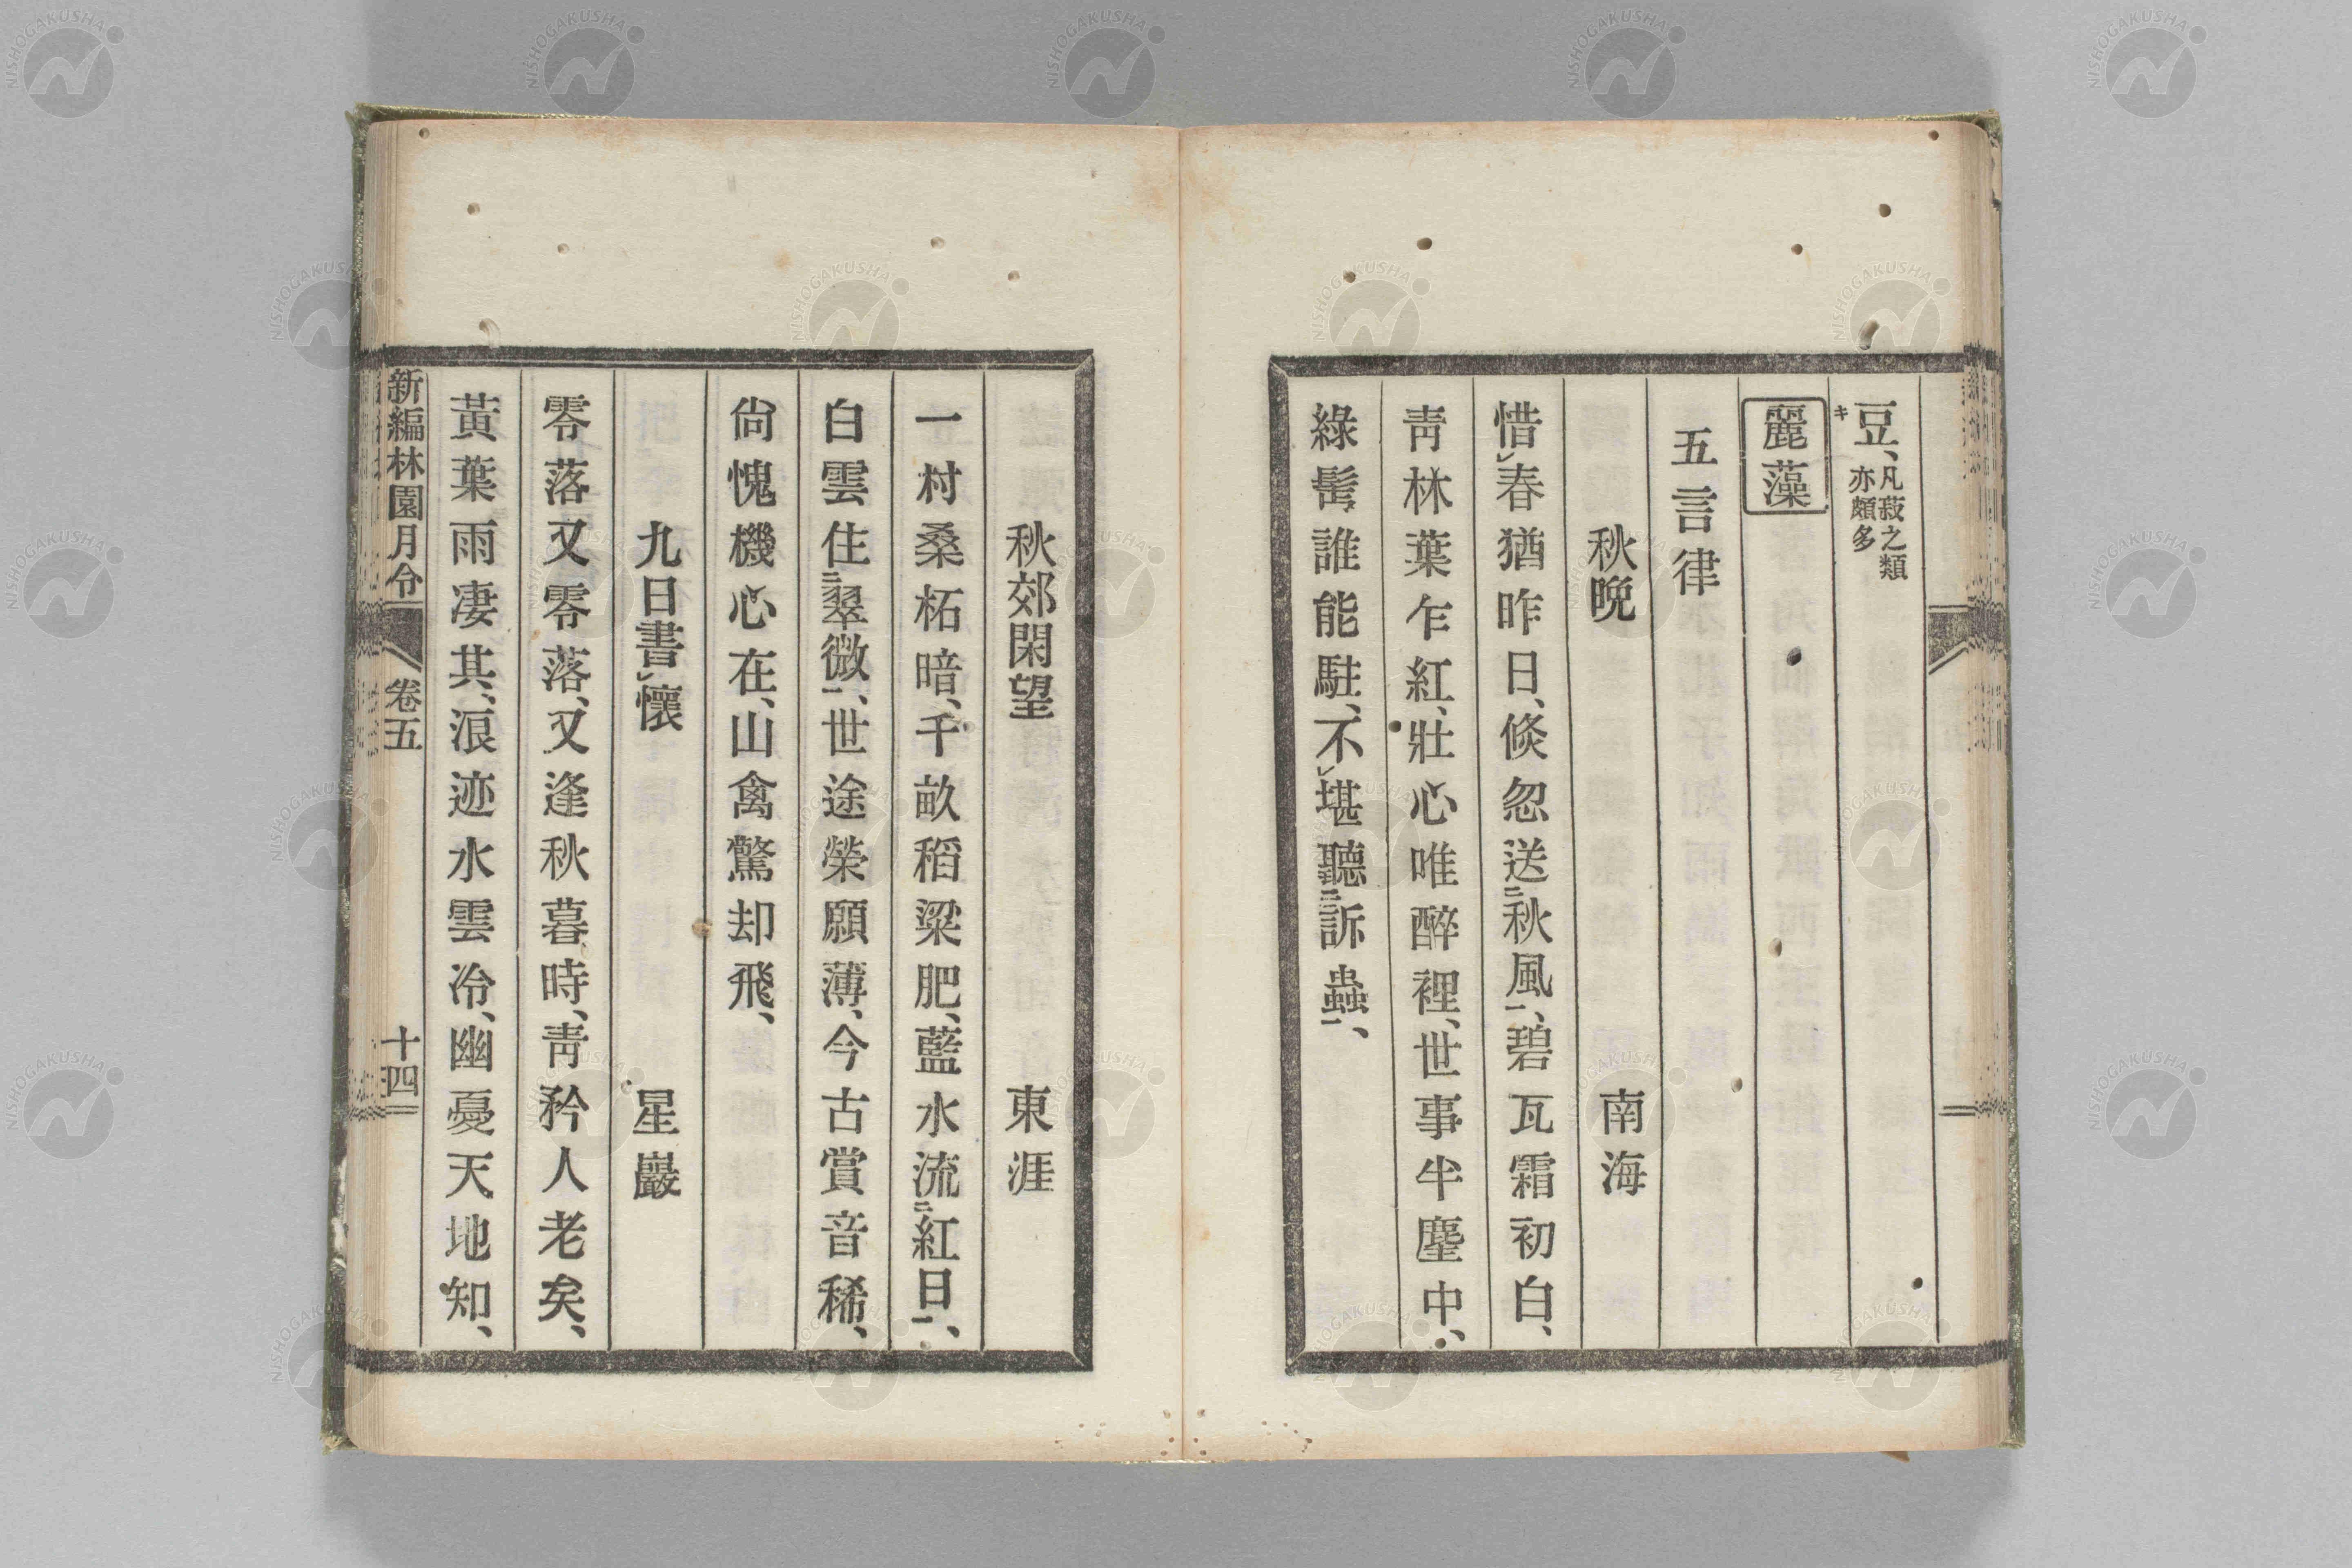 豆、凡菽之類亦頗多
キ
麗藻
五言律
秋晩　南海
惜レ春猶昨日、倐忽送二秋風一、碧瓦霜初白、
靑林葉乍紅、壯心唯醉裡、世事半塵中、
綠髩誰能駐、不レ堪聽二訴蟲一、
秋郊閑望　東涯
一村桑柘暗、千畝稻粱肥、藍水流二紅日一、
白雲住二翠微一、世途榮願薄、今古賞音稀、
尙愧機心在、山禽驚却飛、
九日書レ懷　星巖
零落又零落、又逢秋暮時、靑矜人老矣、
黃葉雨凄其、浪迹水雲冷、幽憂天地知、
新編林園月令　卷五　十四
NISHOGAKUSHA